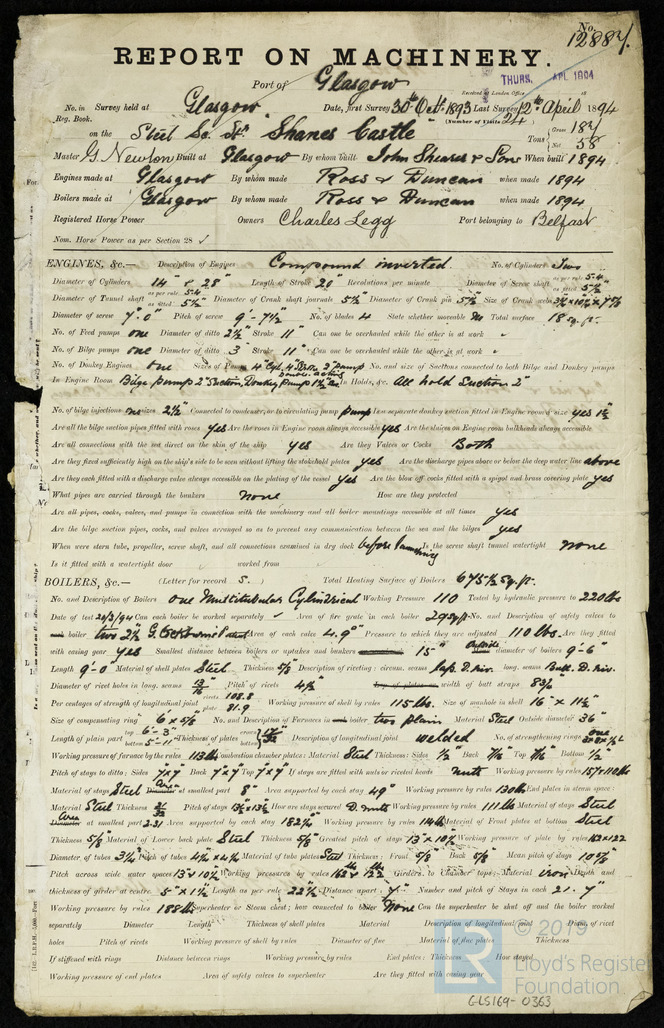 No. 12887.
REPORT ON MACHINERY.
Port of Glasgow
Received at London Office THURS. APL 1894 18
No. in Survey held at Glasgow Date, first Survey 30th Octr. 1893 Last Survey 12th April 1894
Reg. Book. (Number of Visits 24)
on the Steel Sc. Str. "Shanes Castle" Tons Gross 187 Net 58
Master G. Newton Built at Glasgow By whom built John Shearer & Sons When built 1894
Engines made at Glasgow By whom made Ross & Duncan when made 1894
Boilers made at Glasgow By whom made Ross & Duncan when made 1894
Registered Horse Power Owners Charles Legg Port belonging to Belfast
Nom. Horse Power as per Section 28
ENGINES, &c.— Description of Engines Compound inverted. No. of Cylinders Two
Diameter of Cylinders 14" & 28" Length of Stroke 20" Revolutions per minute Diameter of Screw shaft as per rule 5.4 as fitted 5½"
Diameter of Tunnel shaft as per rule 5.4 as fitted 5½" Diameter of Crank shaft journals 5½" Diameter of Crank pin 5½" Size of Crank webs
Diameter of screw 7'-0" Pitch of screw 9'-7½" No. of blades 4 State whether moveable No Total surface 18 sq. ft.
No. of Feed pumps one Diameter of ditto 2½" Stroke 11" Can one be overhauled while the other is at work
No. of Bilge pumps one Diameter of ditto 3" Stroke 11" Can one be overhauled while the other is at work
No. of Donkey Engines one Sizes of Pumps 4" Cyl. 4" Stroke 2" pump double acting No. and size of Suctions connected to both Bilge and Donkey pumps
In Engine Room Bilge pump 2" Suction, Donkey pump 1½" In Holds, &c. All hold Suction 2"
No. of bilge injections one sizes 2½" Connected to condenser, or to circulating pump pump Is a separate donkey suction fitted in Engine room & size yes 1½
Are all the bilge suction pipes fitted with roses yes Are the roses in Engine room always accessible yes Are the sluices on Engine room bulkheads always accessible
Are all connections with the sea direct on the skin of the ship yes Are they Valves or Cocks Both
Are they fixed sufficiently high on the ship's side to be seen without lifting the stokehold plates yes Are the discharge pipes above or below the deep water line above
Are they each fitted with a discharge valve always accessible on the plating of the vessel yes Are the blow off cocks fitted with a spigot and brass covering plate yes
What pipes are carried through the bunkers none How are they protected
Are all pipes, cocks, valves, and pumps in connection with the machinery and all boiler mountings accessible at all times yes
Are the bilge suction pipes, cocks, and valves arranged so as to prevent any communication between the sea and the bilges yes
When were stern tube, propeller, screw shaft, and all connections examined in dry dock before launching Is the screw shaft tunnel watertight none
Is it fitted with a watertight door worked from
BOILERS, &c.— (Letter for record S.) Total Heating Surface of Boilers 675½ sq. ft.
No. and Description of Boilers one Multitubular Cylindrical Working Pressure 110 Tested by hydraulic pressure to 220 lbs
Date of test 20/3/94 Can each boiler be worked separately Area of fire grate in each boiler 29 sq ft No. and Description of safety valves to
boiler two 2½ G. Cockburns Patent Area of each valve 4.9" Pressure to which they are adjusted 110 lbs. Are they fitted
with easing gear yes Smallest distance between boilers or uptakes and bunkers 15" Outside diameter of boilers 9'-6"
Length 9'-0" Material of shell plates Steel Thickness 5/8 Description of riveting: circum. seams lap. D. riv. long. seams Butt. D. riv.
Diameter of rivet holes in long. seams 13/16 Pitch of rivets 4½ width of butt straps 8¾
Per centages of strength of longitudinal joint rivets 108.8 plate 81.9 Working pressure of shell by rules 115 lbs. Size of manhole in shell 16" x 11½"
Size of compensating ring 6 x 5/8 No. and Description of Furnaces in boiler two plain Material Steel Outside diameter 36"
Length of plain part top 6'-3" bottom 5'-11" Thickness of plates Description of longitudinal joint welded No. of strengthening rings one
Working pressure of furnace by the rules 113 lbs Combustion chamber plates: Material Steel Thickness: Sides ½" Back 7/16 Top 7/16 Bottom ½"
Pitch of stays to ditto: Sides 7x7 Back 7x7 Top 7x7 If stays are fitted with nuts or riveted heads nuts Working pressure by rules
Material of stays Steel Area at smallest part 8" Area supported by each stay 49" Working pressure by rules 130 lbs End plates in steam space:
Material Steel Thickness Pitch of stays 13½x13½ How are stays secured D. nuts Working pressure by rules 111 lbs Material of stays Steel
Area at smallest part 2.31 Area supported by each stay 182¼ Working pressure by rules 114 lbs Material of Front plates at bottom Steel
Thickness 5/8 Material of Lower back plate Steel Thickness 5/8 Greatest pitch of stays 13" x 10½ Working pressure of plate by rules 162 & 122
Diameter of tubes 3¼ Pitch of tubes Material of tube plates Steel Thickness: Front 5/8 Back 5/8 Mean pitch of stays
Pitch across wide water spaces 13" x 10½ Working pressures by rules 162 & 122 Girders to Chamber tops: Material iron Depth and
thickness of girder at centre 5" x 1½ Length as per rule 22½ Distance apart 7" Number and pitch of Stays in each 2. 7"
Working pressure by rules 188 lbs Superheater or Steam chest; how connected to boiler None Can the superheater be shut off and the boiler worked
separately Diameter Length Thickness of shell plates Material Description of longitudinal joint Diam. of rivet
holes Pitch of rivets Working pressure of shell by rules Diameter of flue Material of flue plates Thickness
If stiffened with rings Distance between rings Working pressure by rules End plates: Thickness How stayed
Working pressure of end plates Area of safety valves to superheater Are they fitted with easing gear
© 2019
Lloyd's Register
Foundation
GLS169-0363